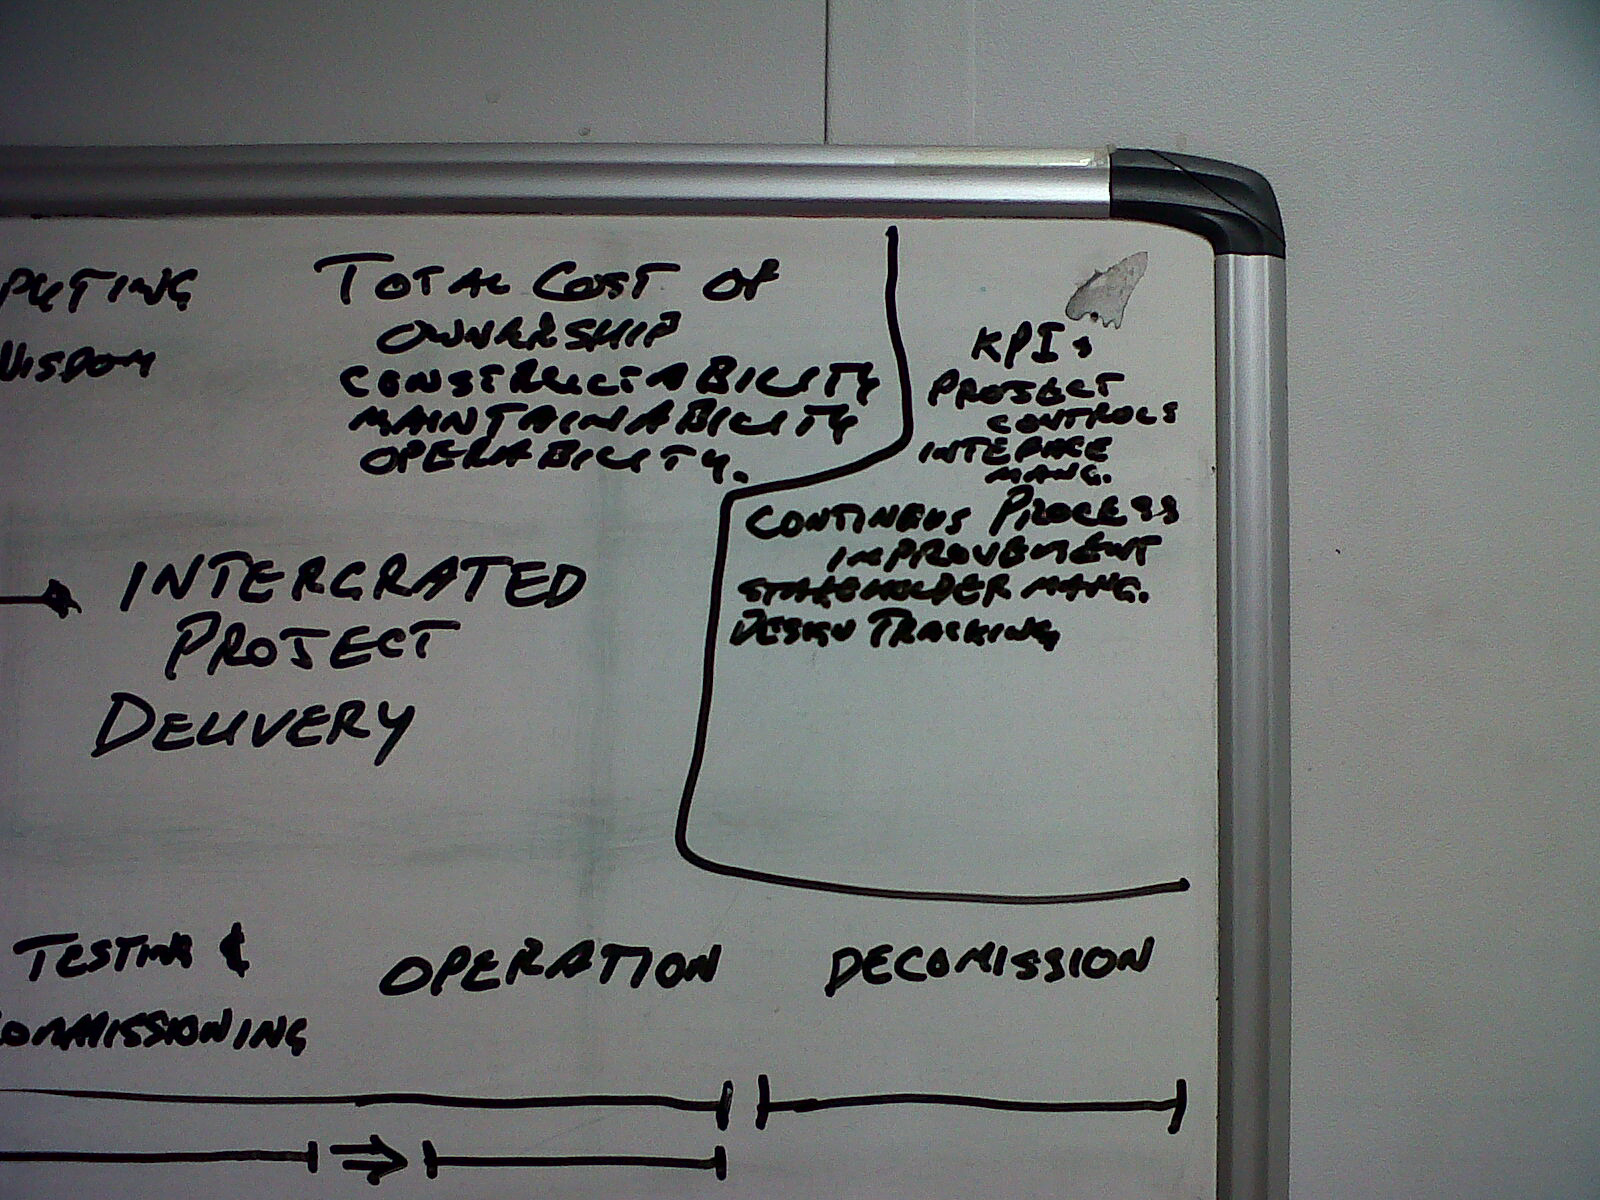 PUTING
WISDOM
TOTAL COST OF
OWNERSHIP
CONSTRUCTABILITY
MAINTAINABILITY
OPERABILITY.
KPIs
PROJECT
CONTROLS
INTERFACE
MANG.
CONTINEUS PROCESS
IMPROVEMENT
STAKEHOLDER MANG.
DESIGN TRACKING
INTERGRATED
PROJECT
DELIVERY
TESTING &
COMMISSIONING
OPERATION
DECOMISSION